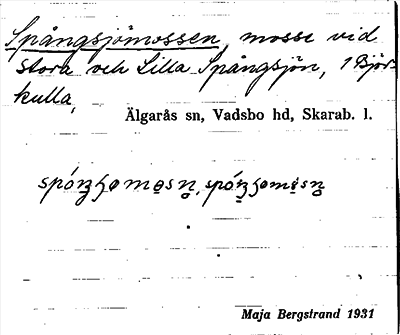 Spångsjömossen, mosse vid
Stora och Lilla Spångsjön, 1 Björ-
kulla,
Älgarås sn, Vadsbo hd, Skarab. l.
Maja Bergstrand 1931